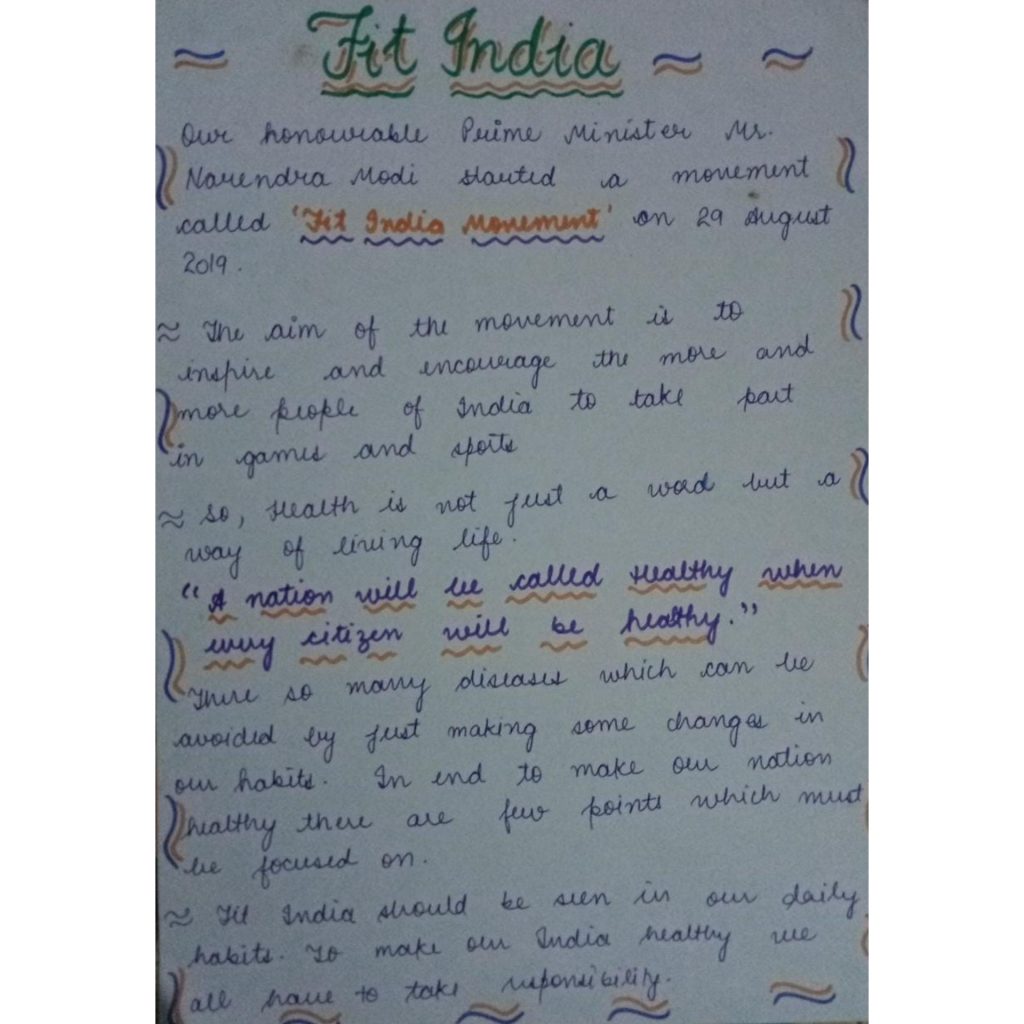 Fit India
Our honourable Prime Minister Mr.
Narendra Modi started a movement
called 'Fit India Movement' on 29 August
2019.
≈ The aim of the movement is to
inspire and encourage the more and
more people of India to take part
in games and sports
≈ So, Health is not just a word but a
way of living life.
"A nation will be called Healthy when
every citizen will be healthy."
There so many diseases which can be
avoided by just making some changes in
our habits. In end to make our nation
healthy there are few points which must
be focused on.
≈ Fit India should be seen in our daily
habits. To make our India healthy we
all have to take responsibility.